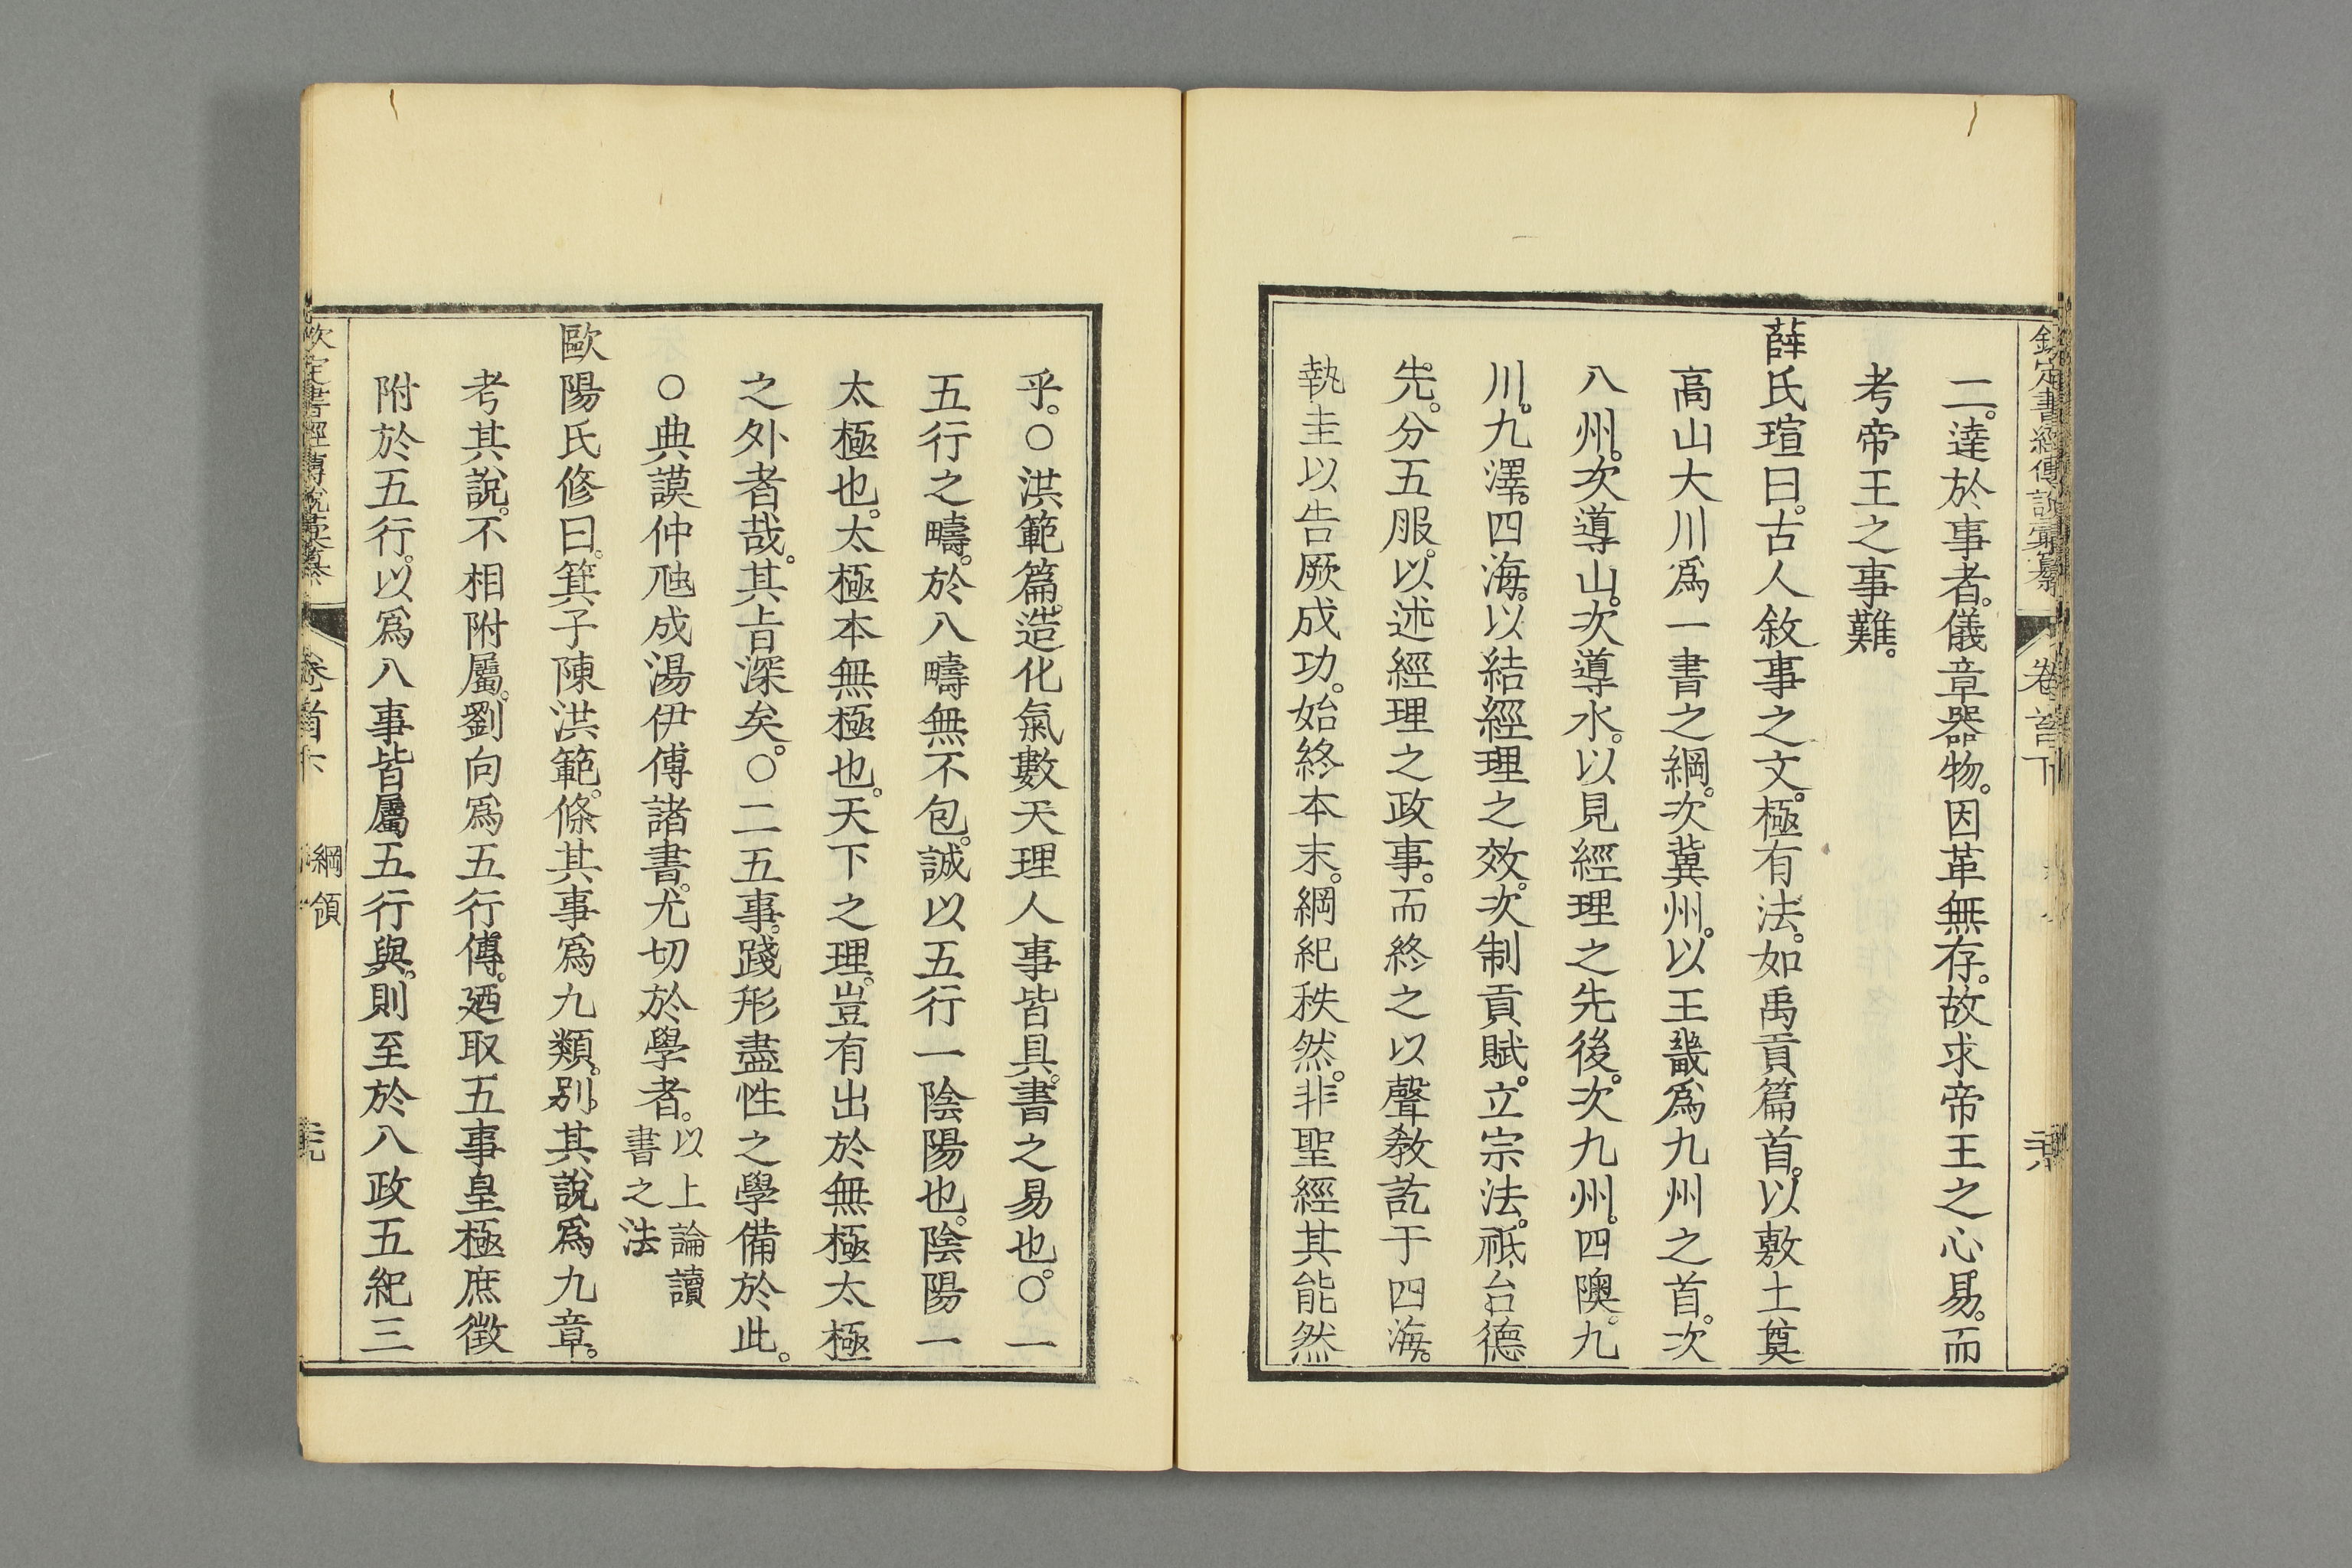 欽定書經傳說彙纂 卷首下
二。達於事者。儀章器物。因革無存。故求帝王之心易。而
考帝王之事難。
薛氏瑄曰。古人敘事之文。極有法。如禹貢篇首。以敷土奠
高山大川爲一書之綱。次冀州。以王畿爲九州之首。次
八州。次導山。次導水。以見經理之先後。次九州。四隩。九
川。九澤。四海。以結經理之效。次制貢賦。立宗法。祗台德
先。分五服。以述經理之政事。而終之以聲教訖于四海。
執圭以告厥成功。始終本末。綱紀秩然。非聖經其能然
乎。○洪範篇。造化氣數天理人事皆具。書之易也。○一
五行之疇。於八疇無不包。誠以五行一陰陽也。陰陽一
太極也。太極本無極也。天下之理。豈有出於無極太極
之外者哉。其㫖深矣。○二五事。踐形盡性之學備於此。
○典謨仲虺成湯伊傅諸書。尤切於學者。以上論讀
書之法
歐陽氏修曰。箕子陳洪範。條其事爲九類。别其說爲九章。
考其說。不相附屬。劉向爲五行傳。廼取五事皇極庶徵
附於五行。以爲八事皆屬五行與。則至於八政五紀三
欽定書經傳說彙纂 卷首下 綱領